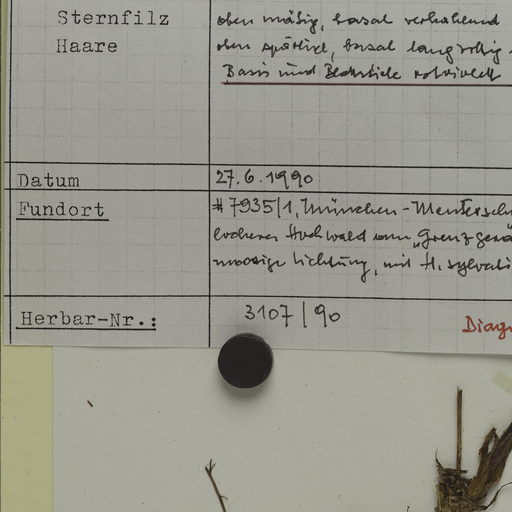 Sternfilz oben mäßig, basal
Haare oben spärlich, basal langzottig
Basis und Blattstiele rotviolett
Datum 27.6.1990
Fundort #7935/1, München-Menterschw
lockerer Hochwald am "Grenz
moosige Lichtung, mit H. sylvati
Herbar-Nr.: 3107/90
Diagn